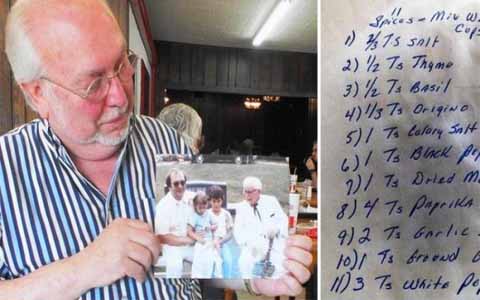 11
Spices - Mix W
Cups
1) 2/3 Ts Salt
2) 1/2 Ts Thyme
3) 1/2 Ts Basil
4) 1/3 Ts Origino
5) 1 Ts Celery Salt
6) 1 Ts Black Pep
7) 1 Ts Dried M
8) 4 Ts Paprika
9) 2 Ts Garlic
10) 1 Ts Ground
11) 3 Ts White Pep